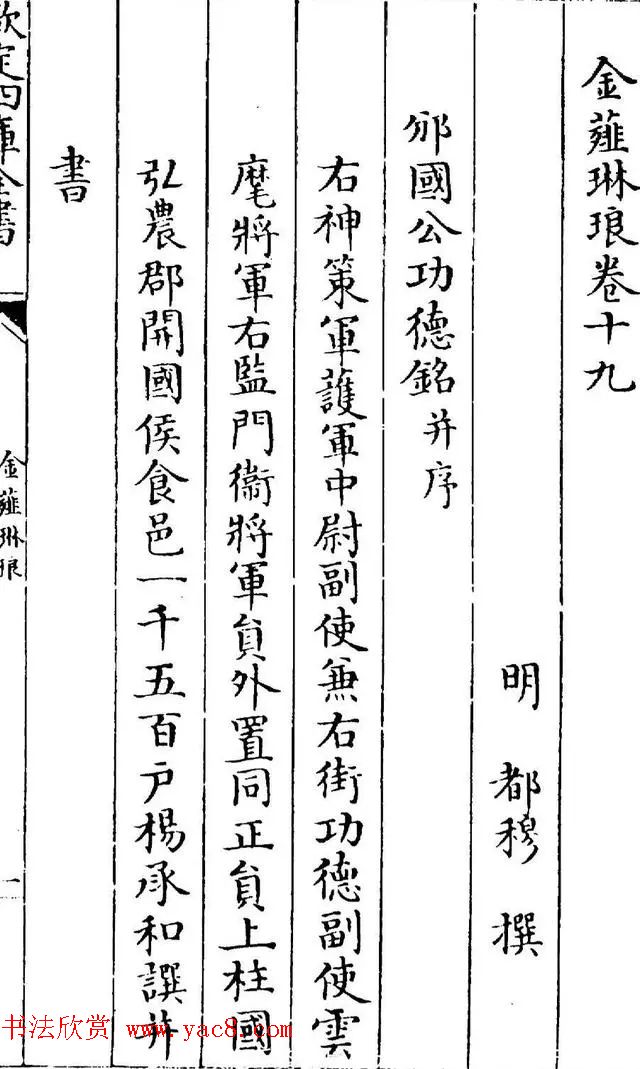 金薤琳琅卷十九
明 都穆 撰
邠國公功德銘并序
右神策軍護軍中尉副使兼右街功德副使雲
麾將軍右監門衞將軍員外置同正員上柱國
弘農郡開國侯食邑一千五百户楊承和譔并
書
欽定四庫全書
金薤琳琅
一
书法欣赏 www.yac8.com